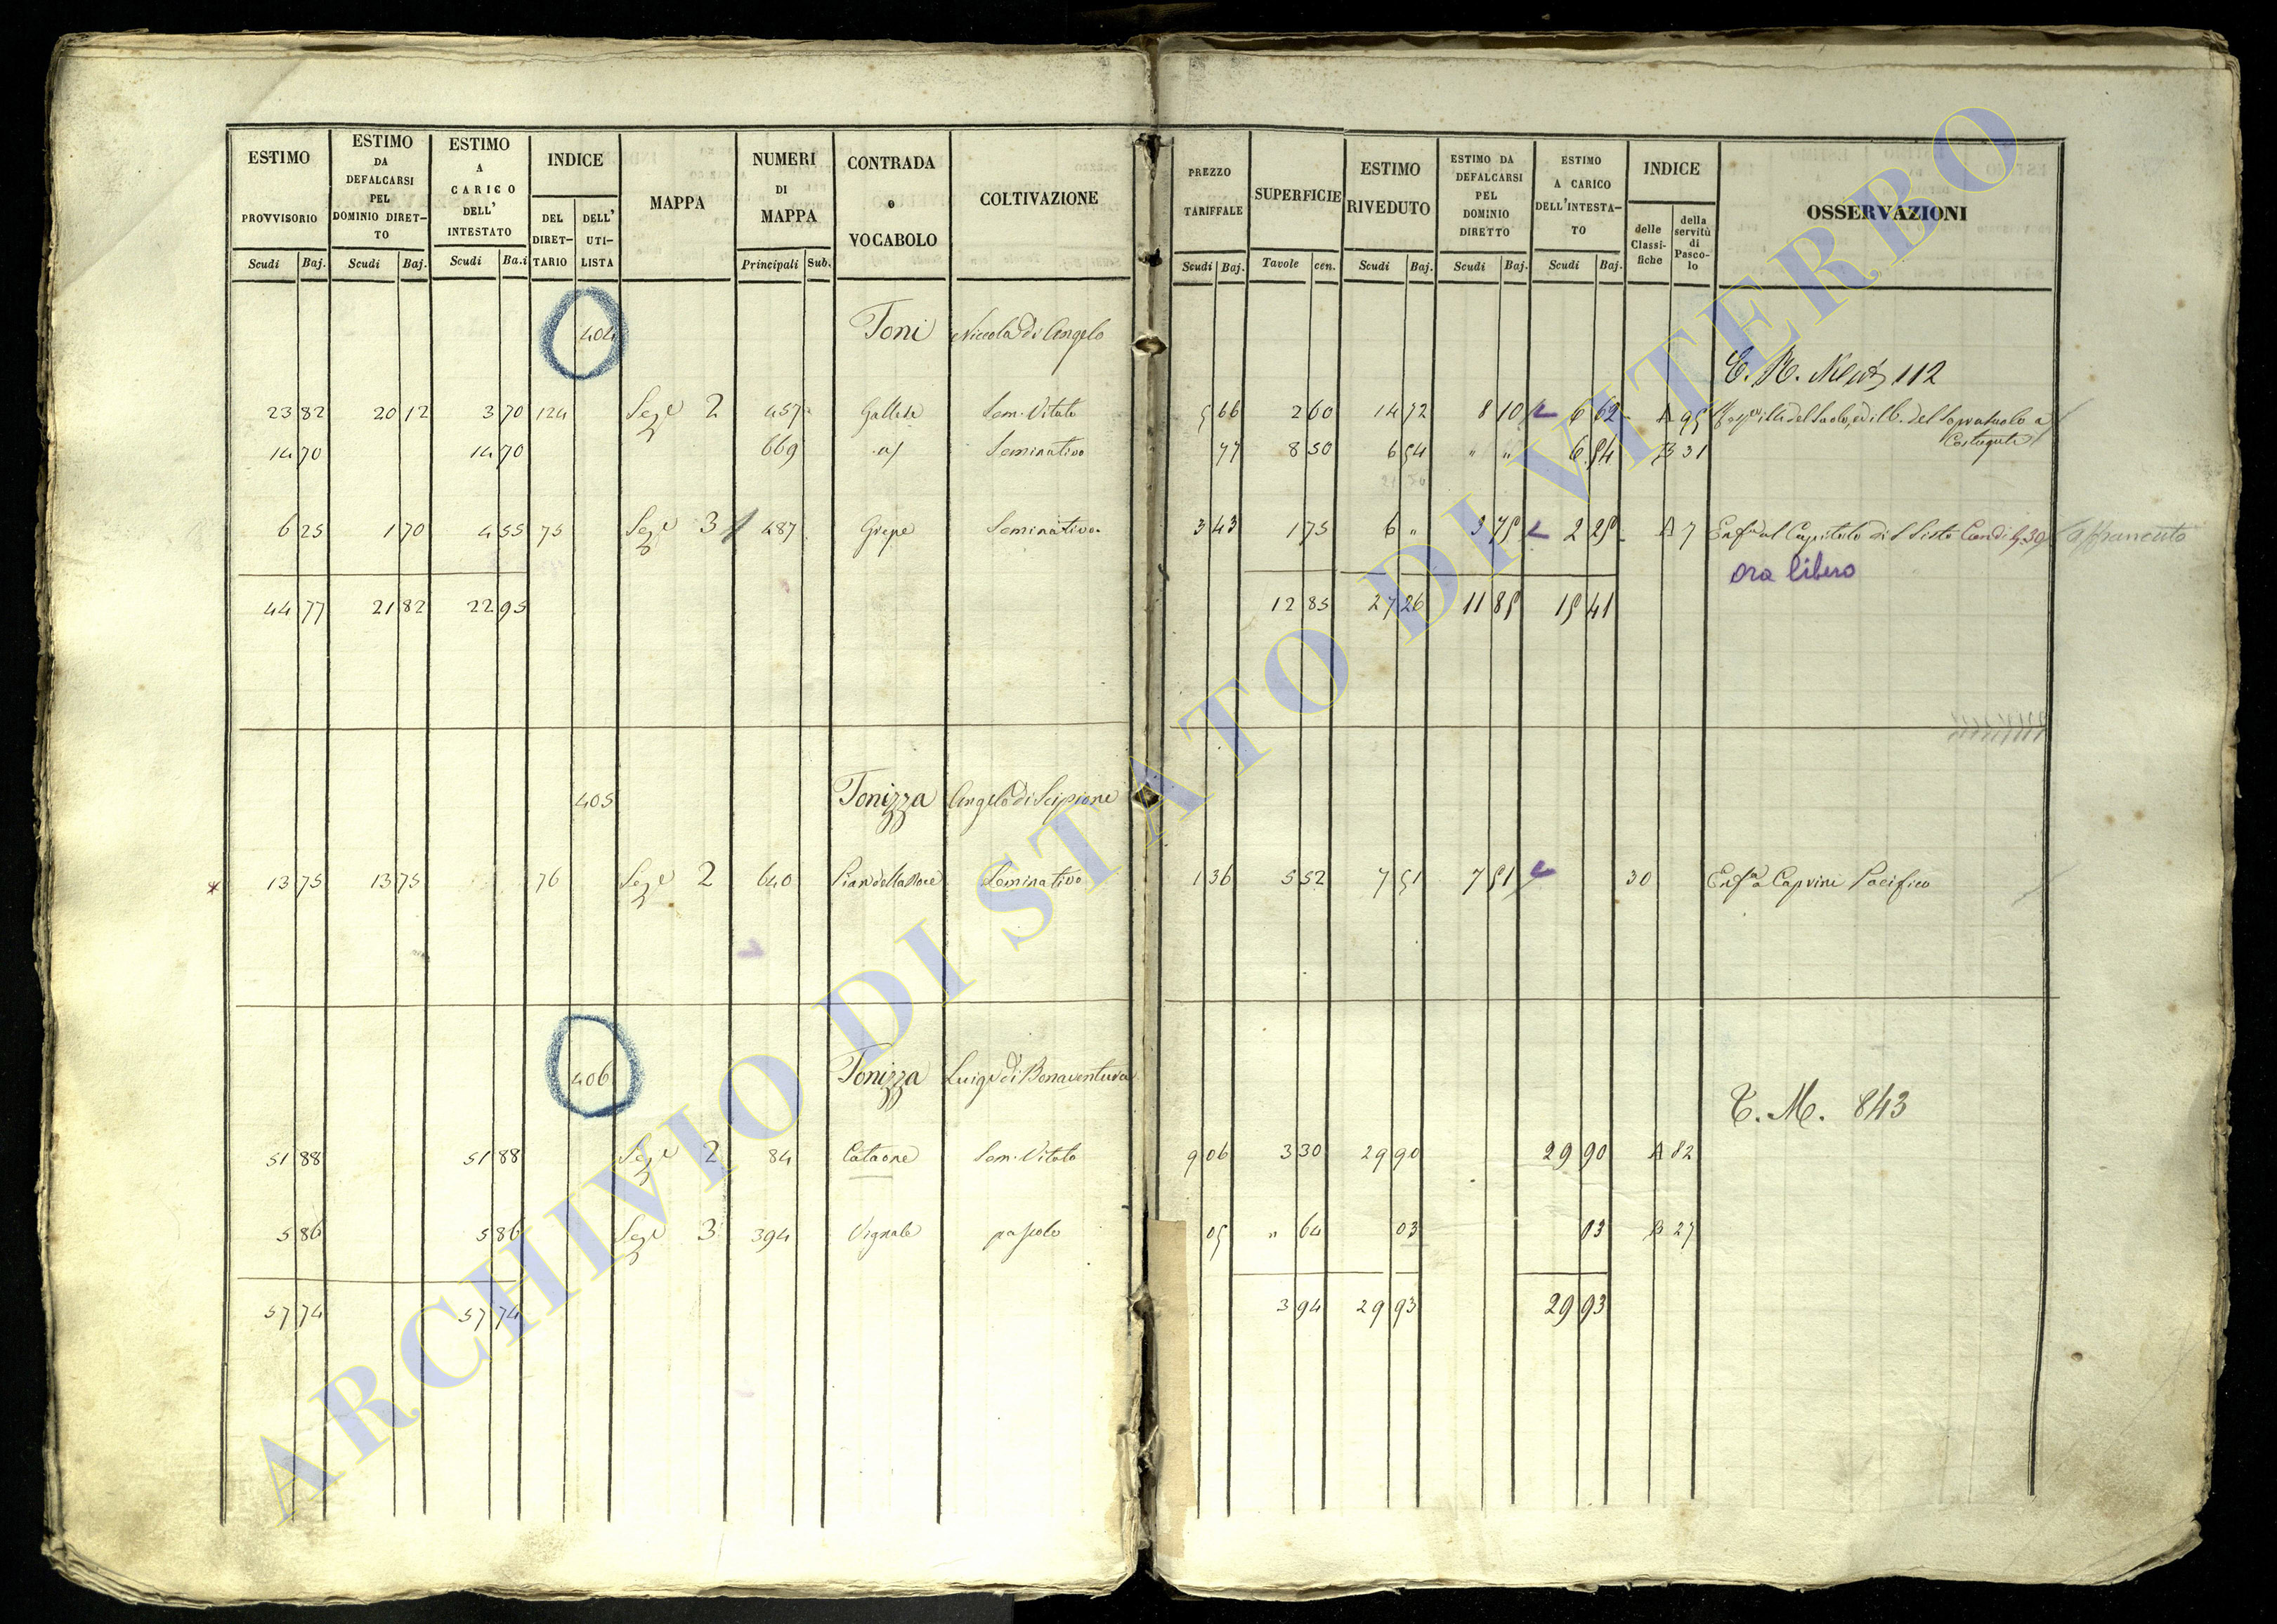 ESTIMO PROVVISORIO Scudi Baj.
ESTIMO DA DEFALCARSI PEL DOMINIO DIRET-TO Scudi Baj.
ESTIMO A CARICO DELL' INTESTATO Scudi Ba.i
INDICE DEL DIRET-TARIO DELL' UTI-LISTA
MAPPA
NUMERI DI MAPPA Principali Sub.
CONTRADA o VOCABOLO
COLTIVAZIONE
PREZZO TARIFFALE Scudi Baj.
SUPERFICIE Tavole cen.
ESTIMO RIVEDUTO Scudi Baj.
ESTIMO DA DEFALCARSI PEL DOMINIO DIRETTO Scudi Baj.
ESTIMO A CARICO DELL'INTESTA-TO Scudi Baj.
INDICE delle Classi-fiche della servitù di Pasco-lo
OSSERVAZIONI
404 Toni Niccola di Angelo
112
23 82 20 12 3 70 124 Sez.e 2 457 Gallese Sem. Vitato 5 66 2 60 14 72 8 10 6 62 A 95 del Suolo, ed ill. del Soprasuolo a
14 70 14 70 669 id Seminativo 77 8 50 6 54 " " 6 54 B 31
6 25 1 70 4 55 75 Sez.e 3 487 Grepe Seminativo 3 43 1 75 6 " 3 75 2 25 A 7 Enf.a al Capitolo di S Sisto Can di 9.30 affrancato
ora libero
44 77 21 82 22 95 12 85 27 26 11 85 15 41
405 Tonizza Angelo di Scipione
* 13 75 13 75 76 Sez.e 2 640 Pian della Noce Seminativo 1 36 5 52 7 51 7 51 30 Enf.a a Capvini Pacifico
406 Tonizza Luigi di Bonaventura
T. M. 843
51 88 51 88 Sez.e 2 84 Cataone Sem. Vitato 9 06 3 30 29 90 29 90 A 82
5 86 5 86 Sez.e 3 394 Vignale pascolo 05 " 64 03 03 B 27
57 74 57 74 3 94 29 93 29 93
ARCHIVIO DI STATO DI VITERBO